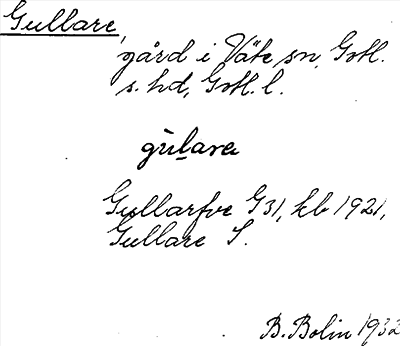 Gullare,
gård i Väte sn, Gotl.
s. hd, Gotl. l.
gùlara
Gullarfve G31, kb 1921,
Gullare S.
B. Bolin 1932